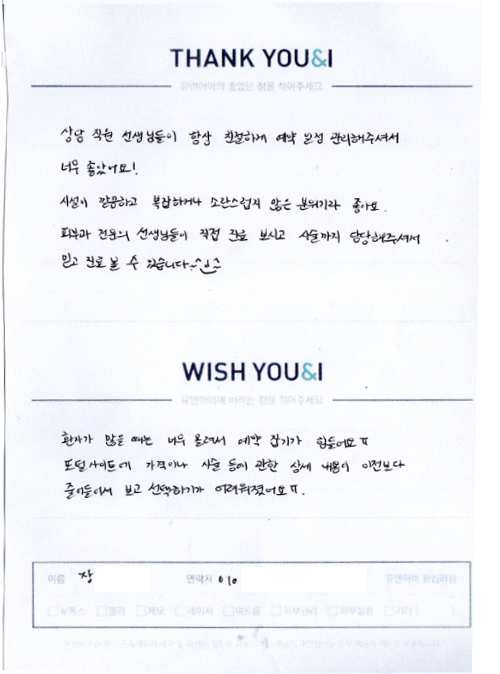 THANK YOU&I
유앤아이의 좋았던 점을 적어주세요
상담 직원 선생님들이 항상 친절하게 예약 일정 관리해주셔서
너무 좋았어요!
시설이 깔끔하고 복잡하거나 소란스럽지 않은 분위기라 좋아요.
피부과 전문의 선생님들이 직접 진료 보시고 시술까지 담당해주셔서
믿고 진료 볼 수 있습니다
WISH YOU&I
유앤아이에 바라는 점을 적어주세요
환자가 많을 때는 너무 몰려서 예약 잡기가 힘들어요ㅠ
포털사이트에 가격이나 시술 등에 관한 상세 내용이 이전보다
줄어들어서 보고 선택하기가 어려워졌어요ㅠ.
이름 장 연락처 010 유앤아이 왕십리점
보톡스 필러 제모 레이저 여드름 피부관리 피부질환 기타 ( )